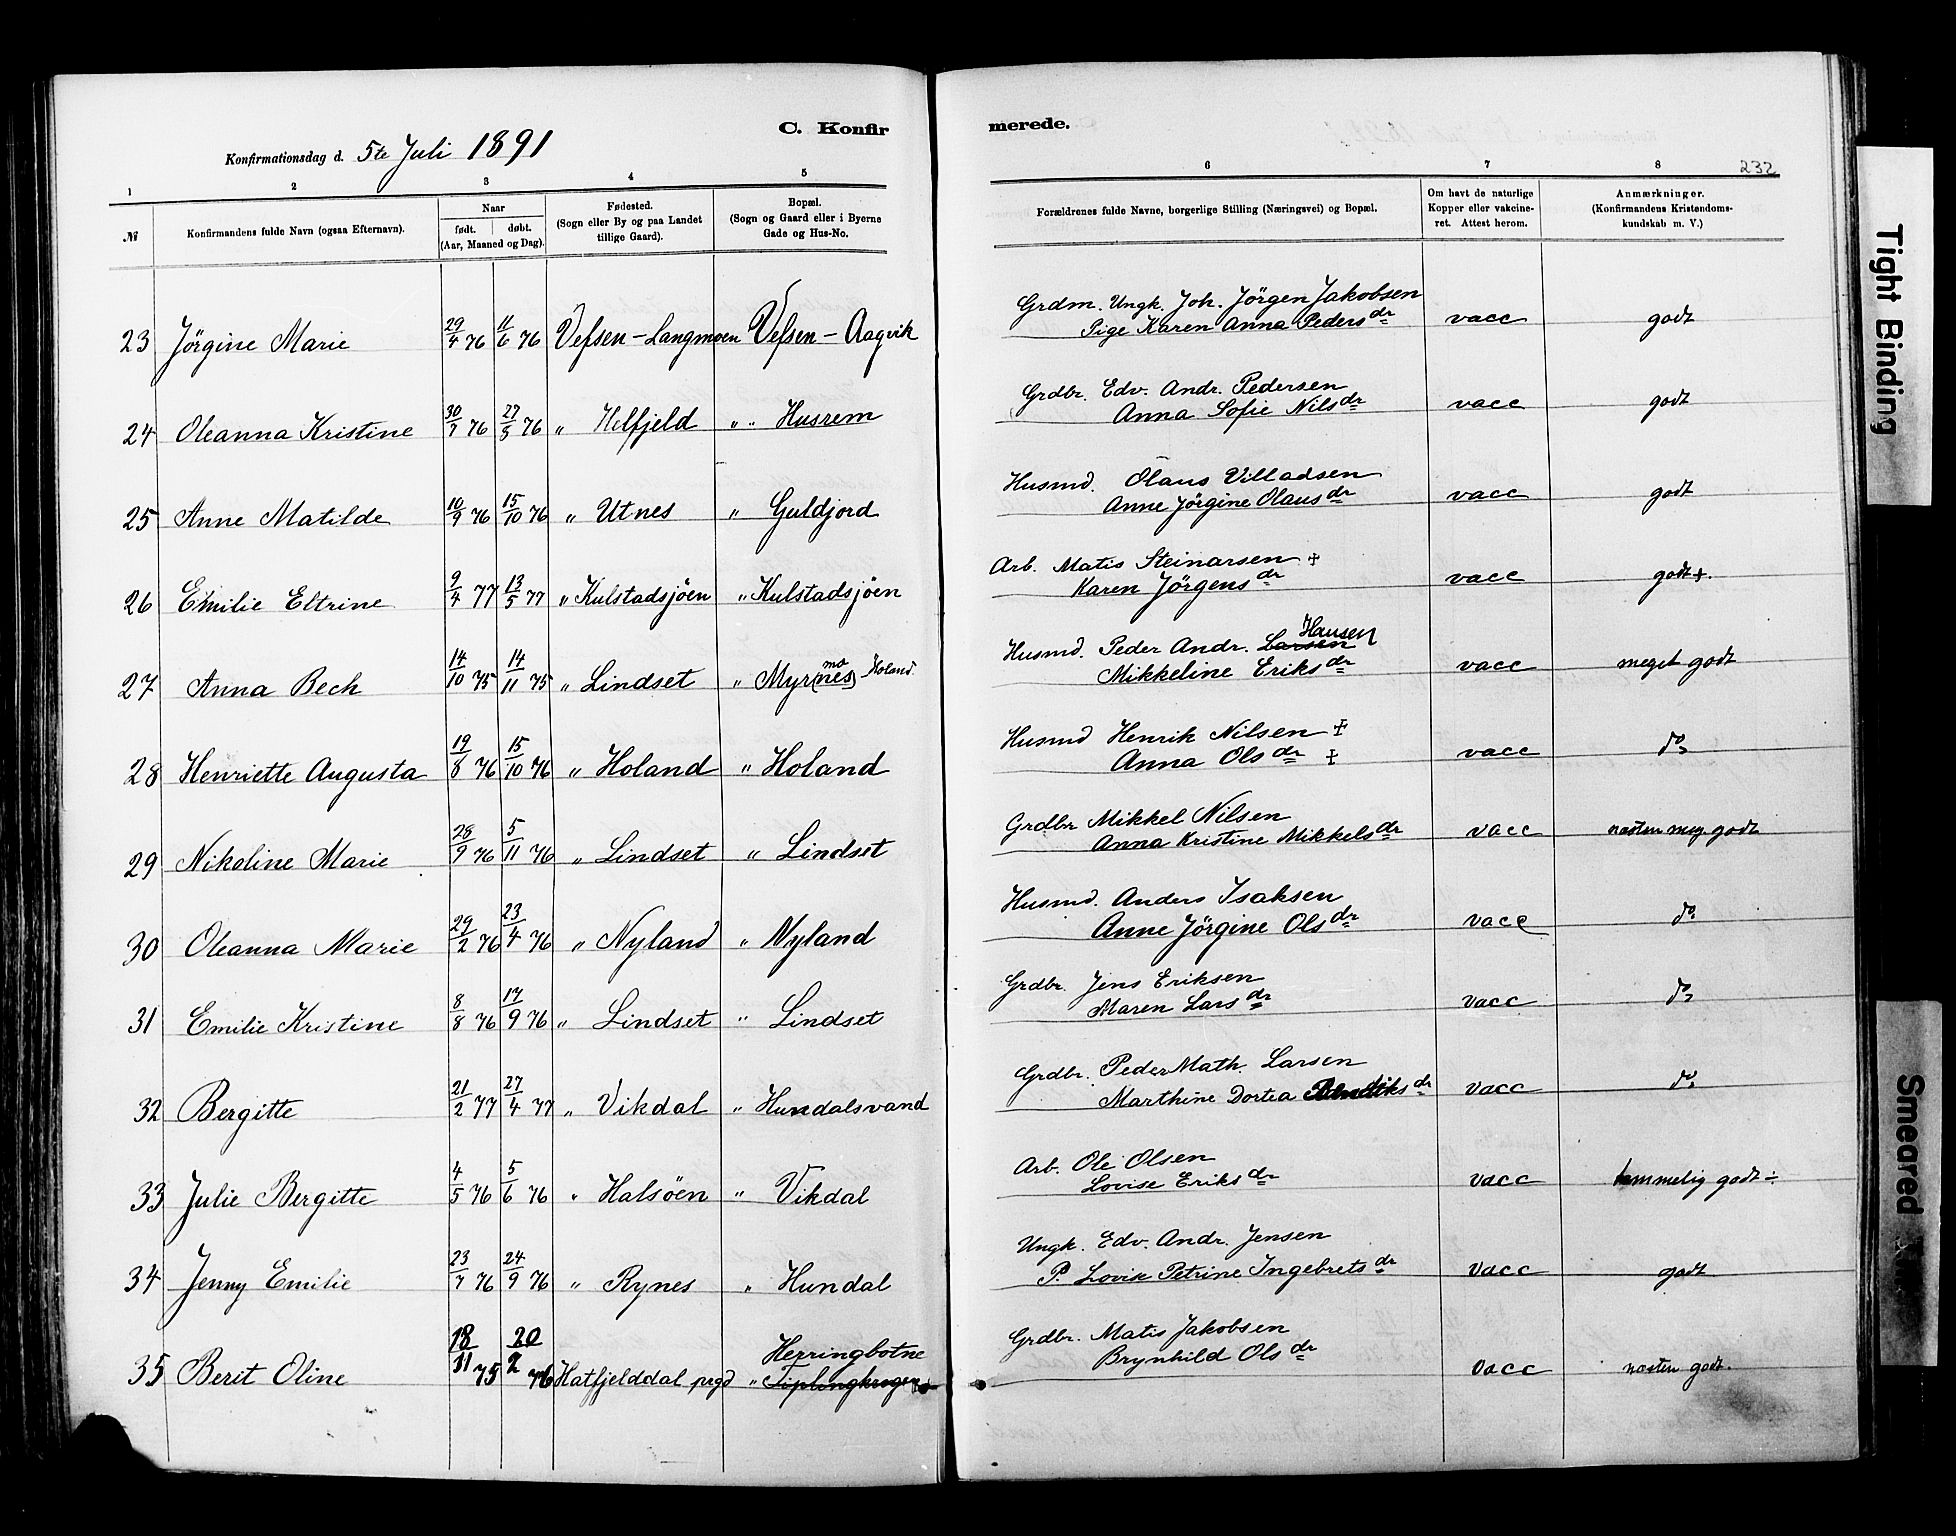 C. Konfirmerede.
Konfirmationsdag d. 5te Juli 1891
232
1 2 3 4 5 6 7 8
№ Konfirmandens fulde Navn (ogsaa Efternavn). Naar født. døbt. (Aar, Maaned og Dag). Fødested. (Sogn eller By og paa Landet tillige Gaard). Bopæl. (Sogn og Gaard eller i Byerne Gade og Hus-No. Forældrenes fulde Navne, borgerlige Stilling (Næringsvei) og Bopæl. Om havt de naturlige Kopper eller vakcineret. Attest herom. Anmærkninger. (Konfirmandens Kristendomskundskab m. V.)
23 Jörgine Marie 29/4 76 11/6 76 Vefsen - Langmoen Vefsen - Aagvik Grdm. Ungk. Joh. Jörgen Jakobsen
Pige Karen Anna Pedersdr vacc godt
24 Oleanna Kristine 30/7 76 27/8 76 " Helfjeld " " Husrem Grdbr. Edv. Andr. Pedersen
Anna Sofie Nilsdr vacc godt
25 Anne Matilde 10/9 76 15/10 76 " Utnes " Guldjord Husmd. Olaus Villadsen
Anne Jörgine Olausdr vacc godt
26 Emilie Eltrine 9/4 77 13/5 77 " Kulstadsjöen " Kulstadsjöen Arb. Matis Steinarsen +
Karen Jörgensdr vacc godt +.
27 Anna Bech 14/10 75 14/11 75 " Lindset " Myr(nes) mo Holand Husmd. Peder Andr. Larsen Hansen
Mikkeline Eriksdr vacc meget godt
28 Henriette Augusta 19/8 76 15/10 76 " Holand " Holand Husmd Henrik Nilsen +
Anna Olsdr + vacc do
29 Nikoline Marie 28/9 76 5/11 76 " Lindset " Lindset Grdbr Mikkel Nilsen
Anna Kristine Mikkelsdr vacc næsten meg godt
30 Oleanna Marie 29/2 76 23/4 76 " Nyland " Nyland Husmd. Anders Isaksen
Anne Jörgine Olsdr vacc do
31 Emilie Kristine 8/8 76 17/9 76 " Lindset " Lindset Grdbr. Jens Eriksen
Maren Larsdr vacc do
32 Bergitte 21/2 77 27/4 77 " Vikdal " Hundalsvand Grdbr. Peder Math. Larsen
Marthine Dortea Bendiksdr vacc do
33 Julie Bergitte 4/5 76 5/6 76 " Halsöen " Vikdal Arb. Ole Olsen
Lovise Eriksdr vacc temmelig godt ÷
34 Jenny Emilie 23/7 76 24/9 76 " Rynes " Hundal Ungk. Edv. Andr. Jensen
P. Lovise Petrine Ingebretsdr vacc godt
35 Berit Oline 18/11 75 20/2 76 Hatfjelddal prgd " Herringbotne Tiplingkrogen Grdbr. Matis Jakobsen
Brynhild Olsdr vacc næsten godt.
Tight Binding
Smeared